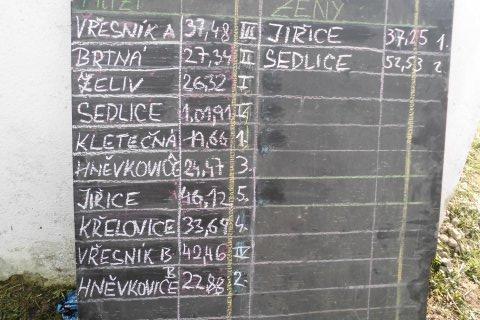 MUŽI ŽENY
VŘESNÍK A 37,48 III JIŘICE 37,25 1.
BRTNÁ 27,34 II SEDLICE 52,53 2
ŽELIV 26,32 I
SEDLICE 1.01,91 V.
KLETEČNÁ 19,66 1.
HNĚVKOVICE A 24,47 3.
JIŘICE 46,12 5.
KŘELOVICE 33,69 4.
VŘESNÍK B 42,46 IV
HNĚVKOVICE B 22,88 2.